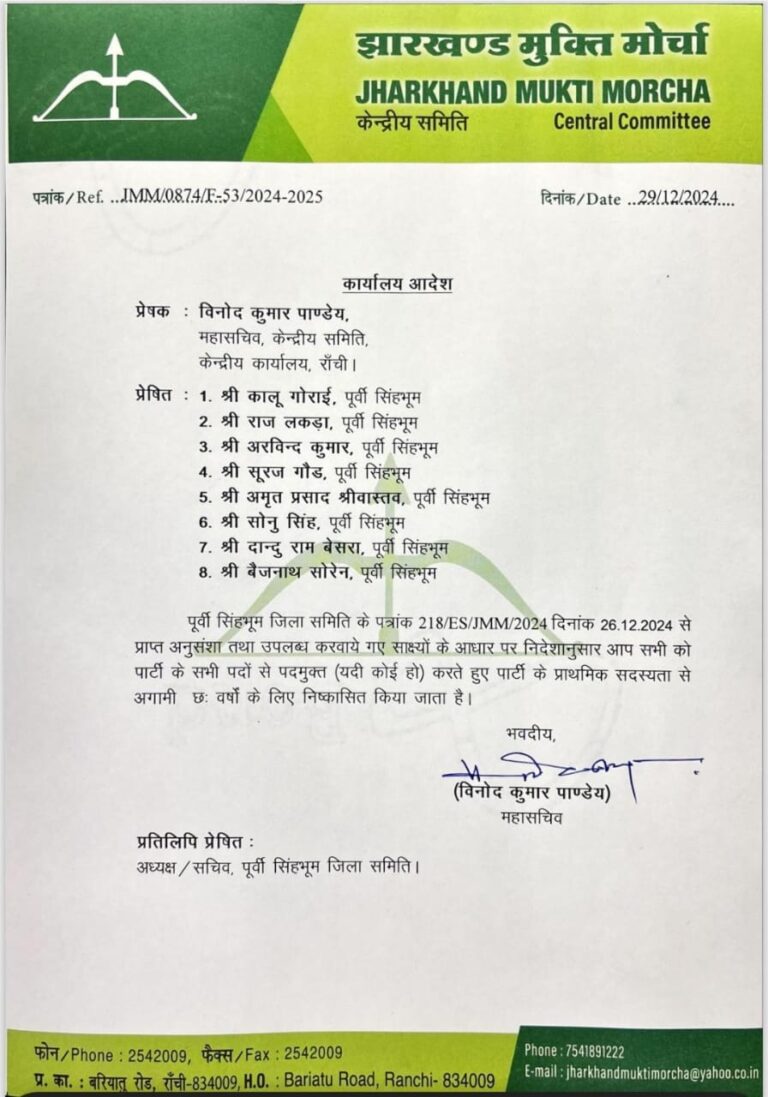 झारखण्ड मुक्ति मोर्चा
JHARKHAND MUKTI MORCHA
केन्द्रीय समिति Central Committee
पत्रांक/Ref. ..JMM/0874/F-53/2024-2025 दिनांक/Date ..29/12/2024....
कार्यालय आदेश
प्रेषक : विनोद कुमार पाण्डेय,
महासचिव, केन्द्रीय समिति,
केन्द्रीय कार्यालय, राँची।
प्रेषित : 1. श्री कालू गोराई, पूर्वी सिंहभूम
2. श्री राज लकड़ा, पूर्वी सिंहभूम
3. श्री अरविन्द कुमार, पूर्वी सिंहभूम
4. श्री सूरज गौड, पूर्वी सिंहभूम
5. श्री अमृत प्रसाद श्रीवास्तव, पूर्वी सिंहभूम
6. श्री सोनु सिंह, पूर्वी सिंहभूम
7. श्री दान्दु राम बेसरा, पूर्वी सिंहभूम
8. श्री बैजनाथ सोरेन, पूर्वी सिंहभूम
पूर्वी सिंहभूम जिला समिति के पत्रांक 218/ES/JMM/2024 दिनांक 26.12.2024 से
प्राप्त अनुसंशा तथा उपलब्ध करवाये गए साक्ष्यों के आधार पर निदेशानुसार आप सभी को
पार्टी के सभी पदों से पदमुक्त (यदी कोई हो) करते हुए पार्टी के प्राथमिक सदस्यता से
अगामी छः वर्षो के लिए निष्कासित किया जाता है।
भवदीय,
(विनोद कुमार पाण्डेय)
महासचिव
प्रतिलिपि प्रेषित :
अध्यक्ष/सचिव, पूर्वी सिंहभूम जिला समिति।
फोन/Phone : 2542009, फैक्स/Fax : 2542009
प्र. का. : बरियातु रोड, राँची-834009, H.O. : Bariatu Road, Ranchi- 834009
Phone : 7541891222
E-mail : jharkhandmuktimorcha@yahoo.co.in